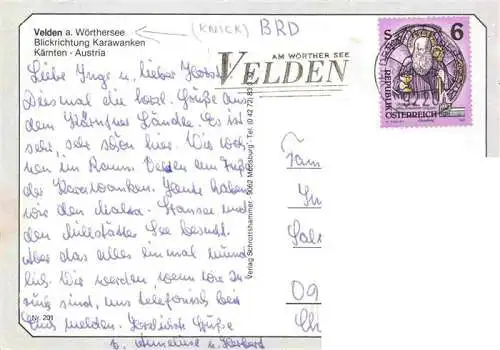 Velden a. Wörthersee
Blickrichtung Karawanken
Kärnten - Austria
(KNICK) BRD
AM WÖRTHER SEE
VELDEN
S 6
REPUBLIK
ÖSTERREICH
9220
Liebe Inge u. lieber Horst
Diesmal ein herzl. Grüße aus
dem Kärntner Ländle. Es ist
sehr, sehr schön hier. Wir woh-
nen im Raum Velden am Fuße
der Karawanken. Heute haben
wir den Malta-Stausee und
den Millstätter See besucht.
Aber das alles einmal münd-
lich. Wir werden wenn wir zu-
rück sind, uns telefonisch bei
Euch melden. Herzlichste Grüße
Anneliese u. Herbert
Verlag Schrottshammer · 9062 Moosburg · Tel. (0 42 72) 83
Fam
In
09
Nr. 201